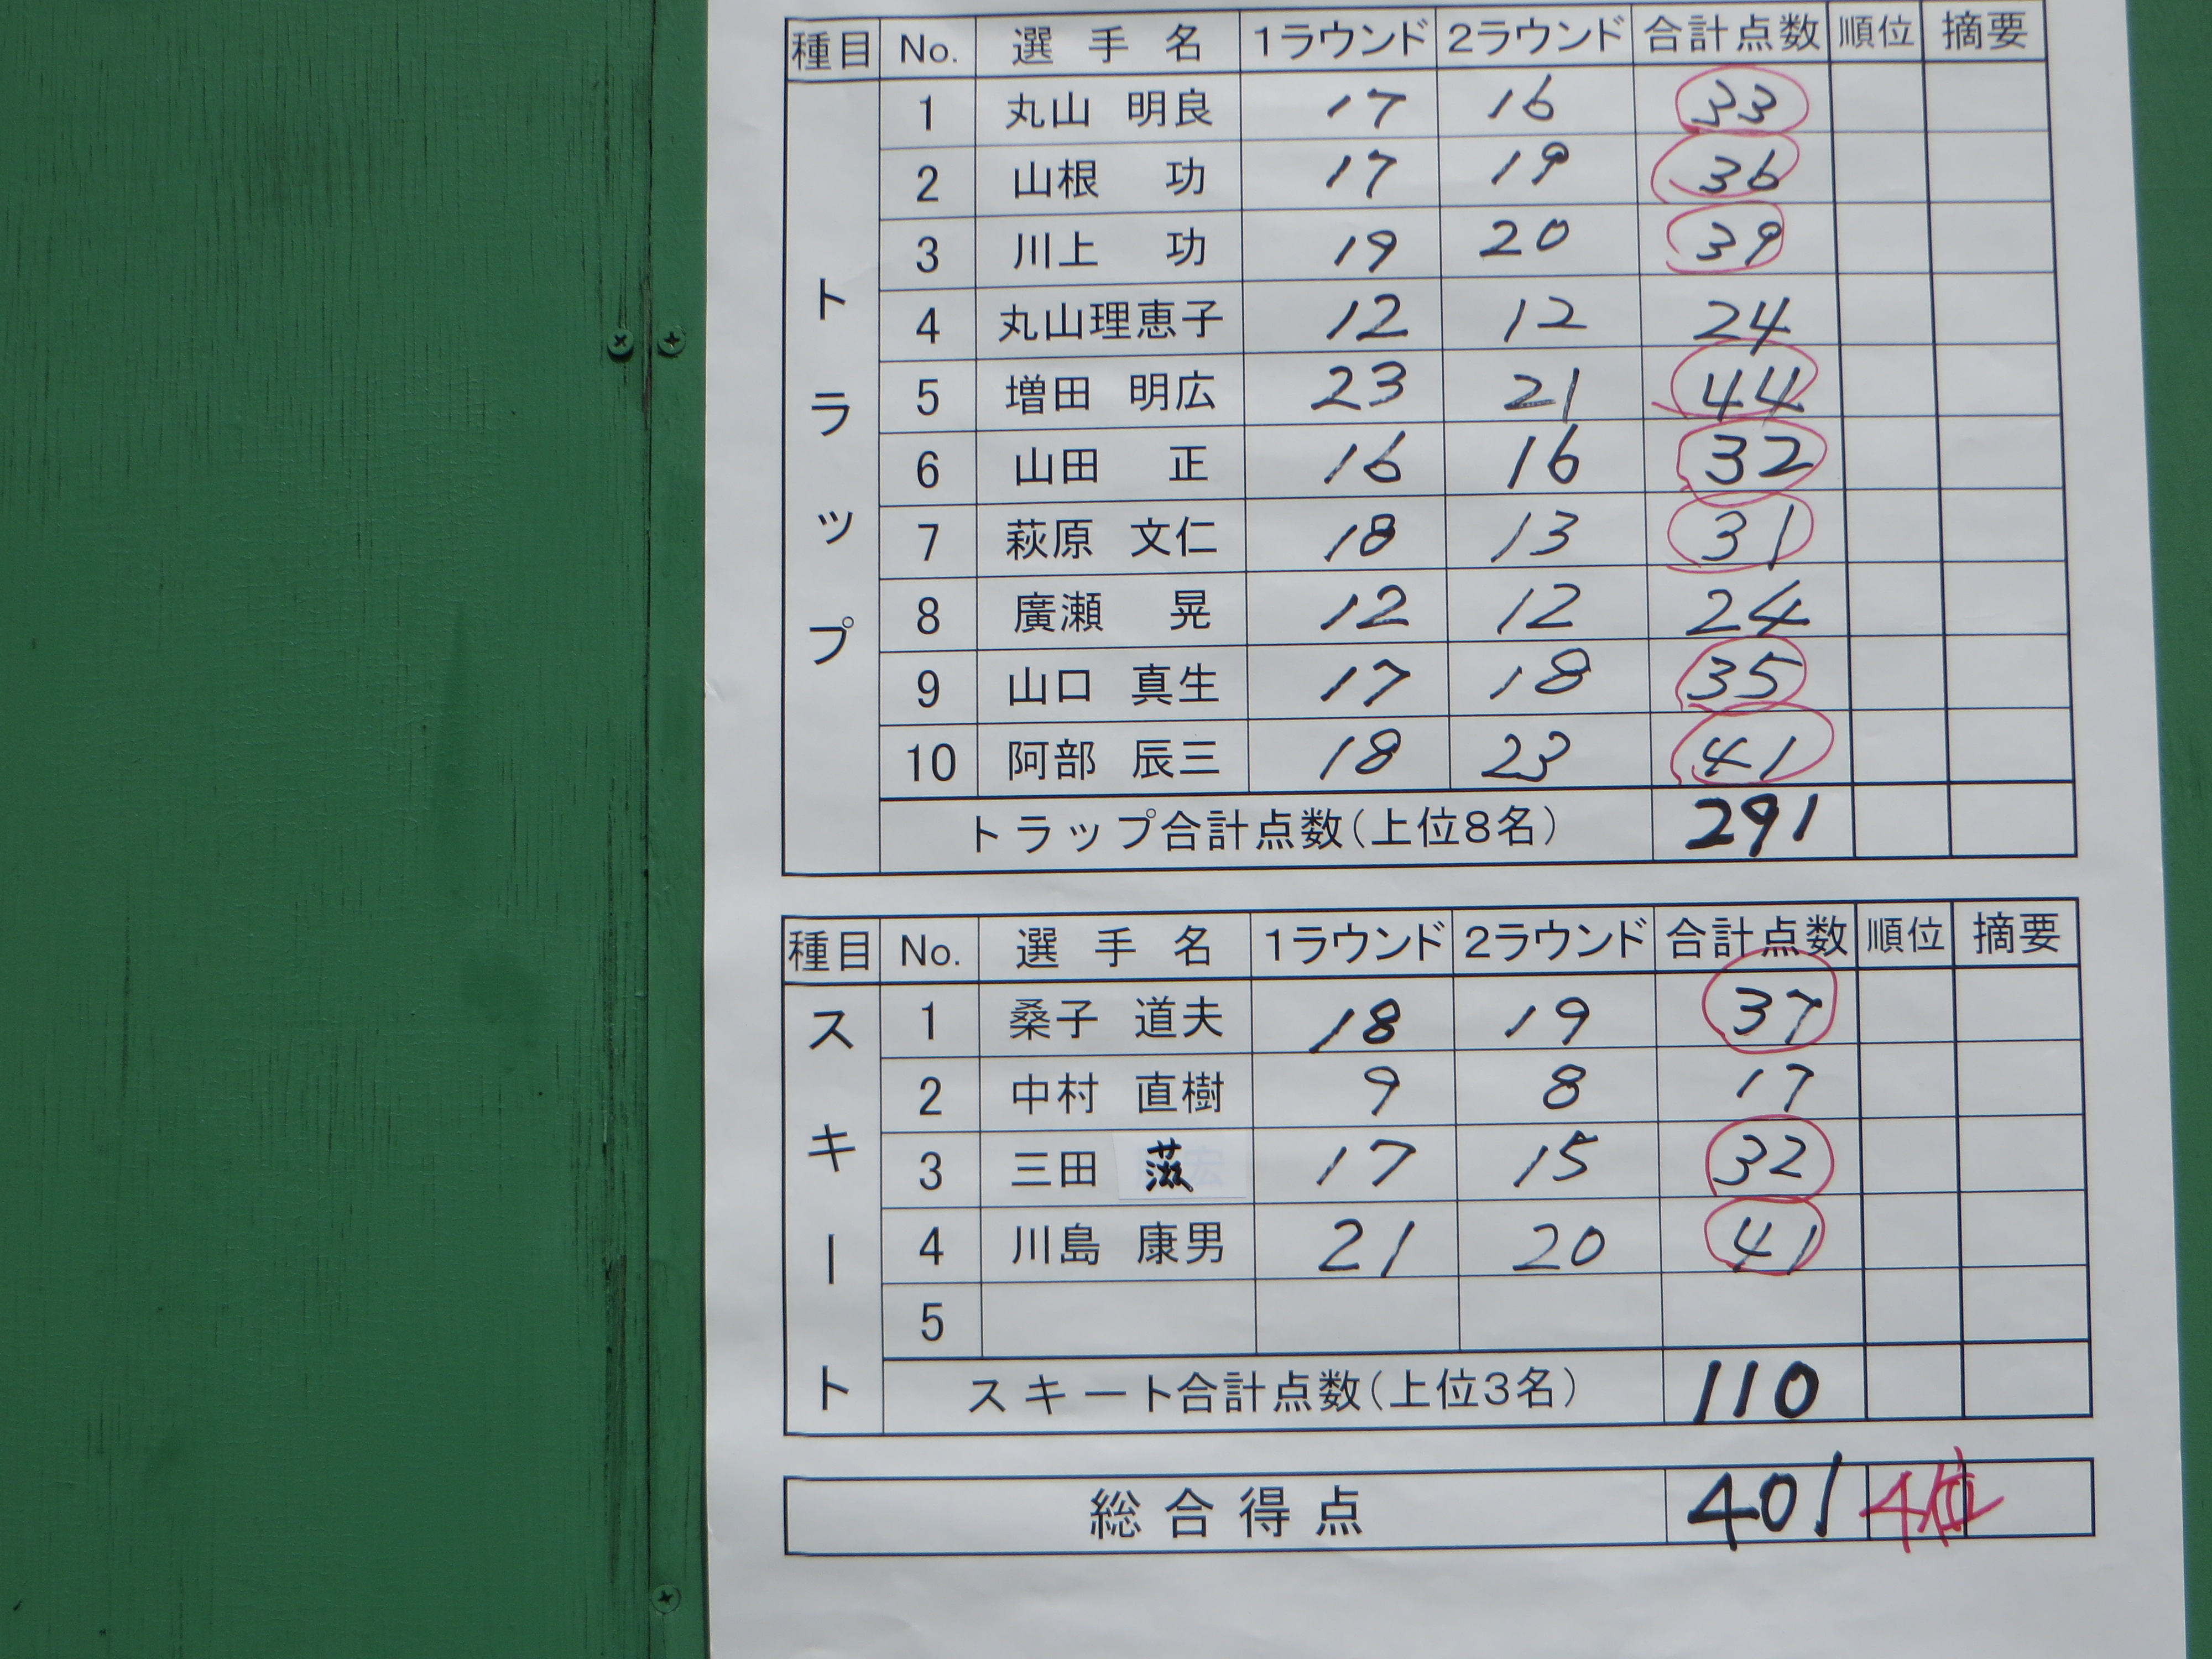 種目 No. 選手名 1ラウンド 2ラウンド 合計点数 順位 摘要
トラップ
1 丸山 明良 17 16 33
2 山根 功 17 19 36
3 川上 功 19 20 39
4 丸山理恵子 12 12 24
5 増田 明広 23 21 44
6 山田 正 16 16 32
7 萩原 文仁 18 13 31
8 廣瀬 晃 12 12 24
9 山口 真生 17 18 35
10 阿部 辰三 18 23 41
トラップ合計点数(上位8名) 291
種目 No. 選手名 1ラウンド 2ラウンド 合計点数 順位 摘要
スキート
1 桑子 道夫 18 19 37
2 中村 直樹 9 8 17
3 三田 滋 17 15 32
4 川島 康男 21 20 41
5
スキート合計点数(上位3名) 110
総合得点 401 4位